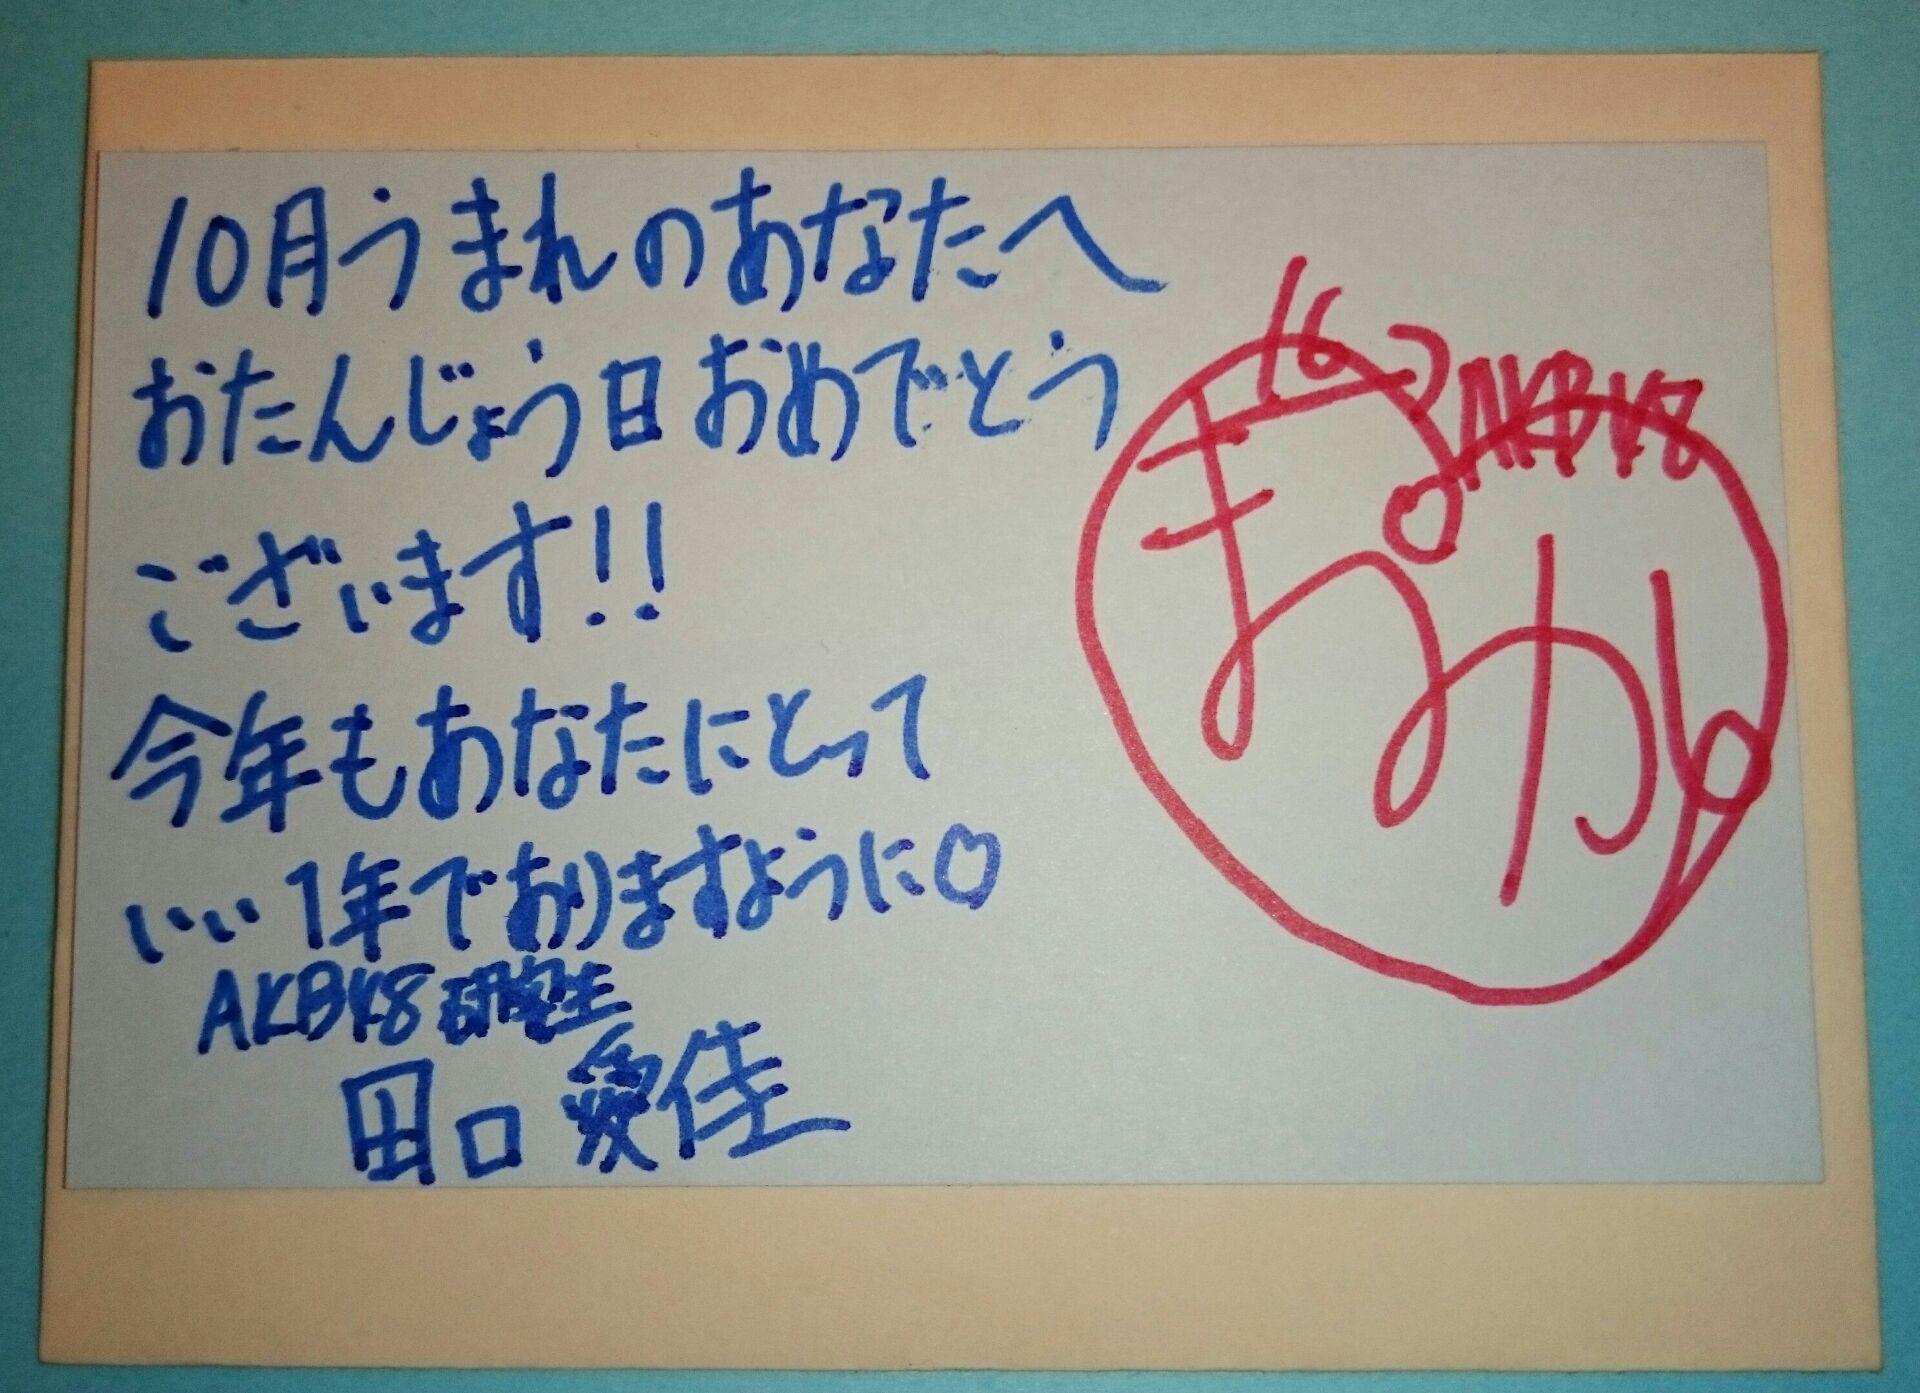 10月うまれのあなたへ
おたんじょう日おめでとう
ございます!!
今年もあなたにとって
いい1年でありますように♡
AKB48 研究生
田口 愛佳
16コ AKB48
まなか